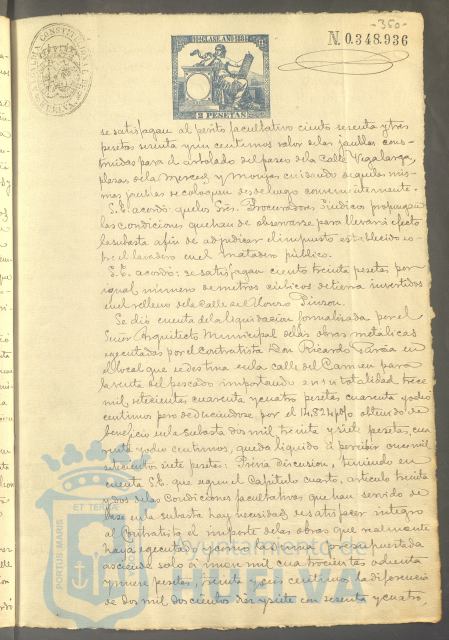 -350-
ALCALDIA CONSTITUCIONAL
HUELVA
CLASE AÑO 1891
2 PESETAS
N. 0.348.936
se satisfagan al perito facultativo ciento sesenta y tres
pesetas sesenta y un centimos valor de las jaulas cons-
truidas para el arbolado del paseo de la Calle Vega larga,
plazas de la Merced y Monjas cuidando de que las mis-
mas jaulas se coloquen desde luego convenientemente.
S.E. acordó que los Sres. Procuradores Sindicos propongan
las condiciones que han de observarse para llevar á efecto
la subasta a fin de adjudicar el impuesto establecido so-
bre el lavadero en el matadero público.
S.E. acordó: se satisfagan ciento treinta pesetas por
igual número de metros cúbicos de tierra invertidos
en el relleno de la Calle Alonso Pinzon.
Se dió cuenta de la liquidacion formalizada por el
Señor Arquitecto Municipal de las obras metálicas
ejecutadas por el contratista Don Ricardo en
el local que se destina en la calle del Carmen para
la venta del pescado importando en su totalidad trece
mil setecientos cuarenta y cuatro pesetas cuarenta y ocho
centimos pero deduciendose por el 14,824 p% obtenido de
beneficio en la subasta dos mil treinta y siete pesetas, cua
renta y ocho centimos, queda líquido á percibir once mil
setecientos siete pesetas: Previa discusion, teniendo en
cuenta S.E. que segun el Capítulo cuarto, artículo treinta
y dos de las Condiciones facultativas que han servido de
base en la subasta hay necesidad de satisfacer integro
al Contratista el importe de las obras que realmente
haya ejecutado y como la suma presupuestada
asciende solo á nueve mil cuatrocientas ochenta
y nueve pesetas, treinta y seis centimos, la diferencia
de dos mil doscientos diez y siete con sesenta y cuatro
PORTUS MARIS
ET TERRÆ
Ayuntamiento de
HUELVA